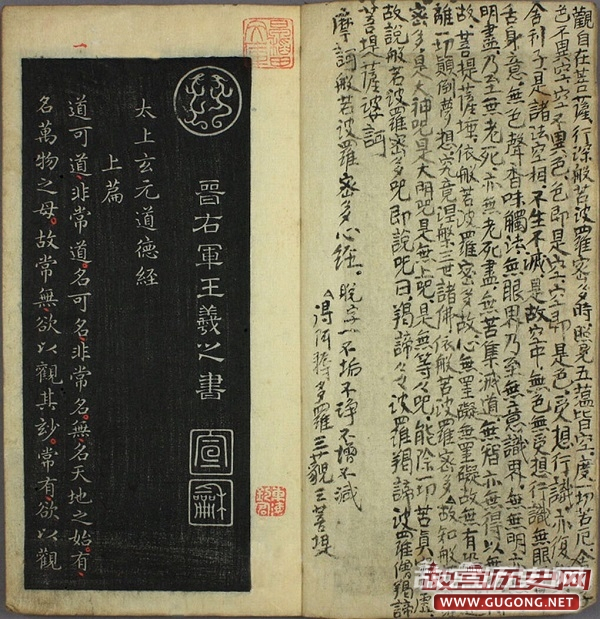 觀自在菩薩行深般若波羅密多時照見五蘊皆空度一切苦厄舍
色不異空空不異色色即是空空即是色受想行識亦復
舍利子是諸法空相不生不滅是故空中無色無受想行識無眼
舌身意無色聲香味觸法無眼界乃至無意識界無無明
明盡乃至無老死亦無老死盡無苦集滅道無智亦無得以無
故菩提薩埵依般若波羅密多故心無罣礙無罣礙故無有
離一切顛倒夢想究竟涅槃三世諸佛依般若波羅密多故知般
密多是大神咒是大明咒是無上咒是無等々咒能除一切苦真
故說般若波羅密多咒即說咒曰揭諦々々波羅揭諦波羅僧揭諦
菩提薩婆訶
摩訶般若波羅密多心經。脫字 不垢不淨不增不減
得阿耨多羅三藐三菩提
晉右軍王羲之書
宣和
太上玄元道德經
上篇
道可道非常道名可名非常名無名天地之始有
名萬物之母故常無欲以觀其妙常有欲以觀
一
故宫历史网
WWW.GUGONG.NET